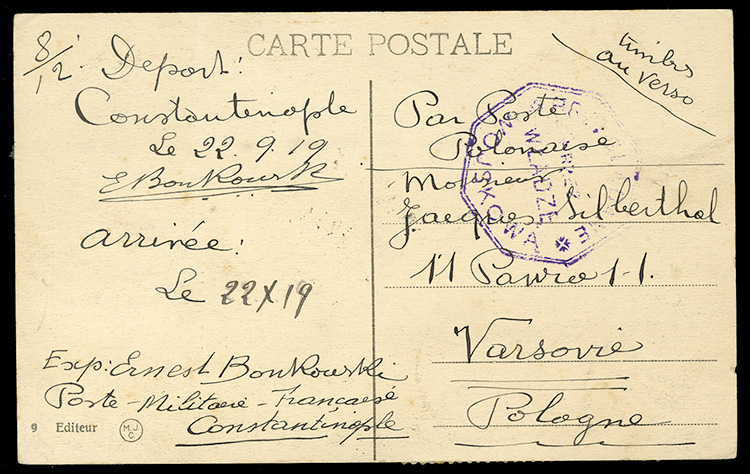 CARTE POSTALE
8/12.
Depart:
Constantinople
Le 22.9.19
E Bonkowski
arrivée:
Le 22 X 19
Exp: Ernest Bonkowski
Poste-Militaire-Française
Constantinople
9 Editeur MJC
timbres
au verso
Par Poste
Polonaise
Monsieur
Jacques Silberthal
11
Varsovie
Pologne
WŁADZE
WOJSKOWA